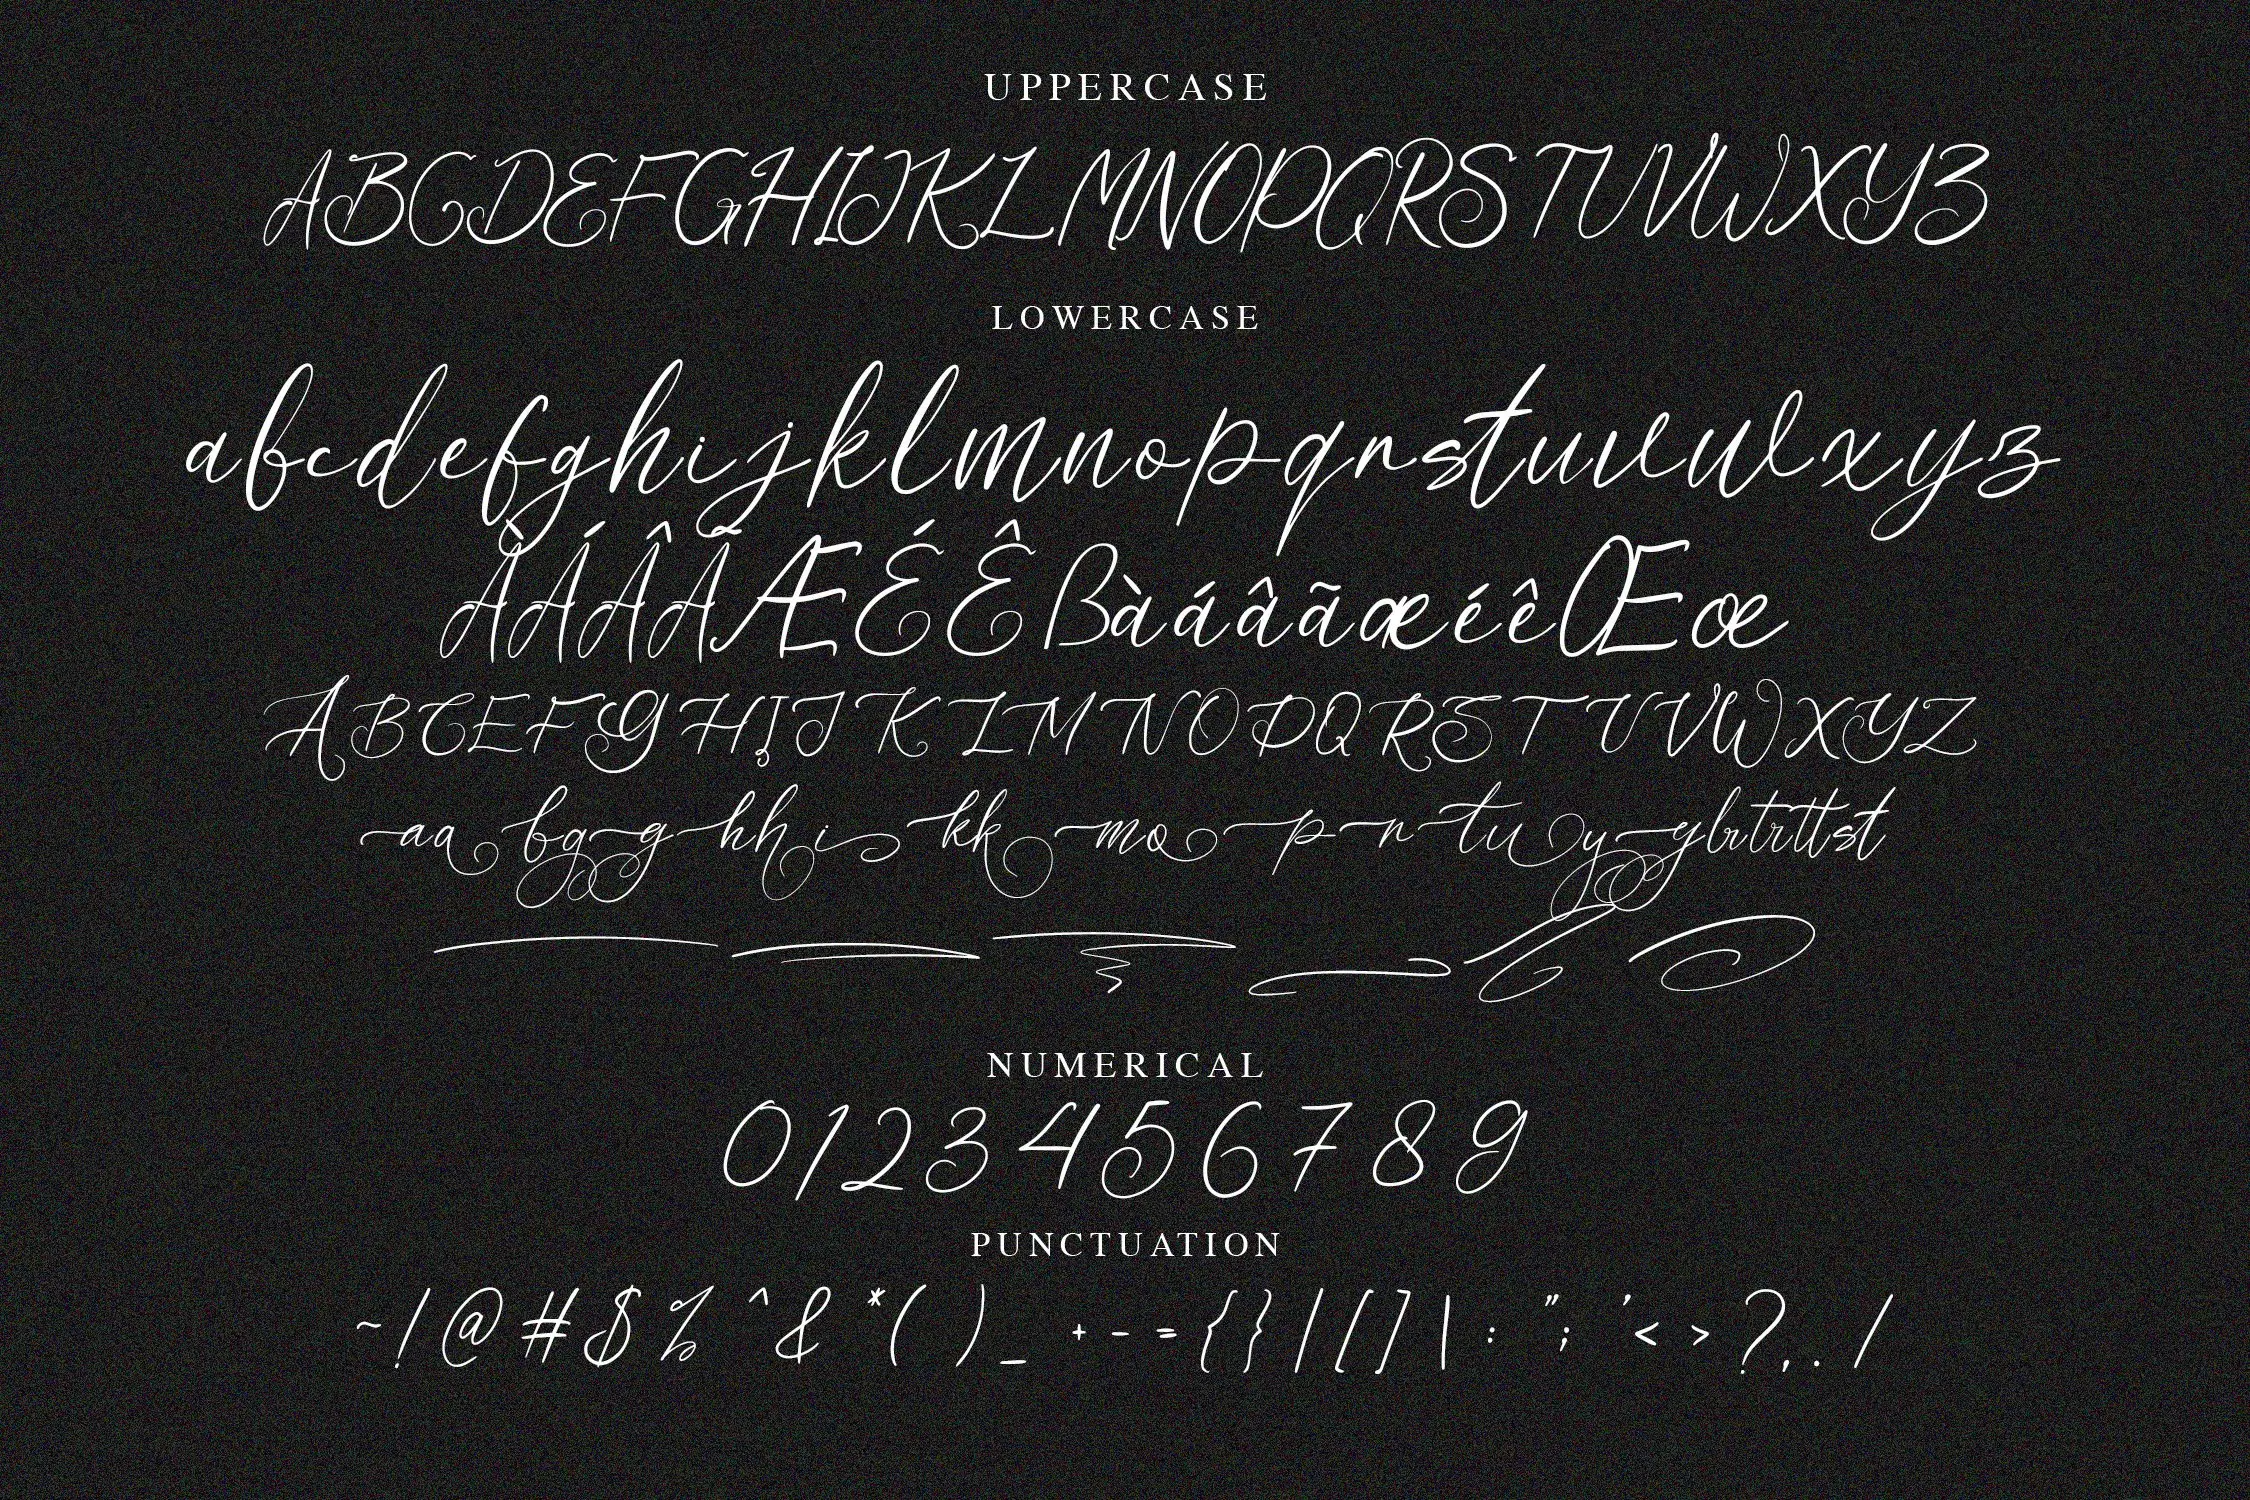 UPPERCASE
ABCDEFGHIJKLMNOPQRSTUVWXYZ
LOWERCASE
abcdefghijklmnopqrstuvwxyz
ÀÁÂÃÆÉÊßàáâãæéêŒœ
ABCEFGHIJKLMNOPQRSTUVWXYZ
aabgghhikkmopntuyylrtrttst
NUMERICAL
0123456789
PUNCTUATION
~!@#$%^&*( )_ + - = { } | [ ] \ : "; ' < > ? , . /